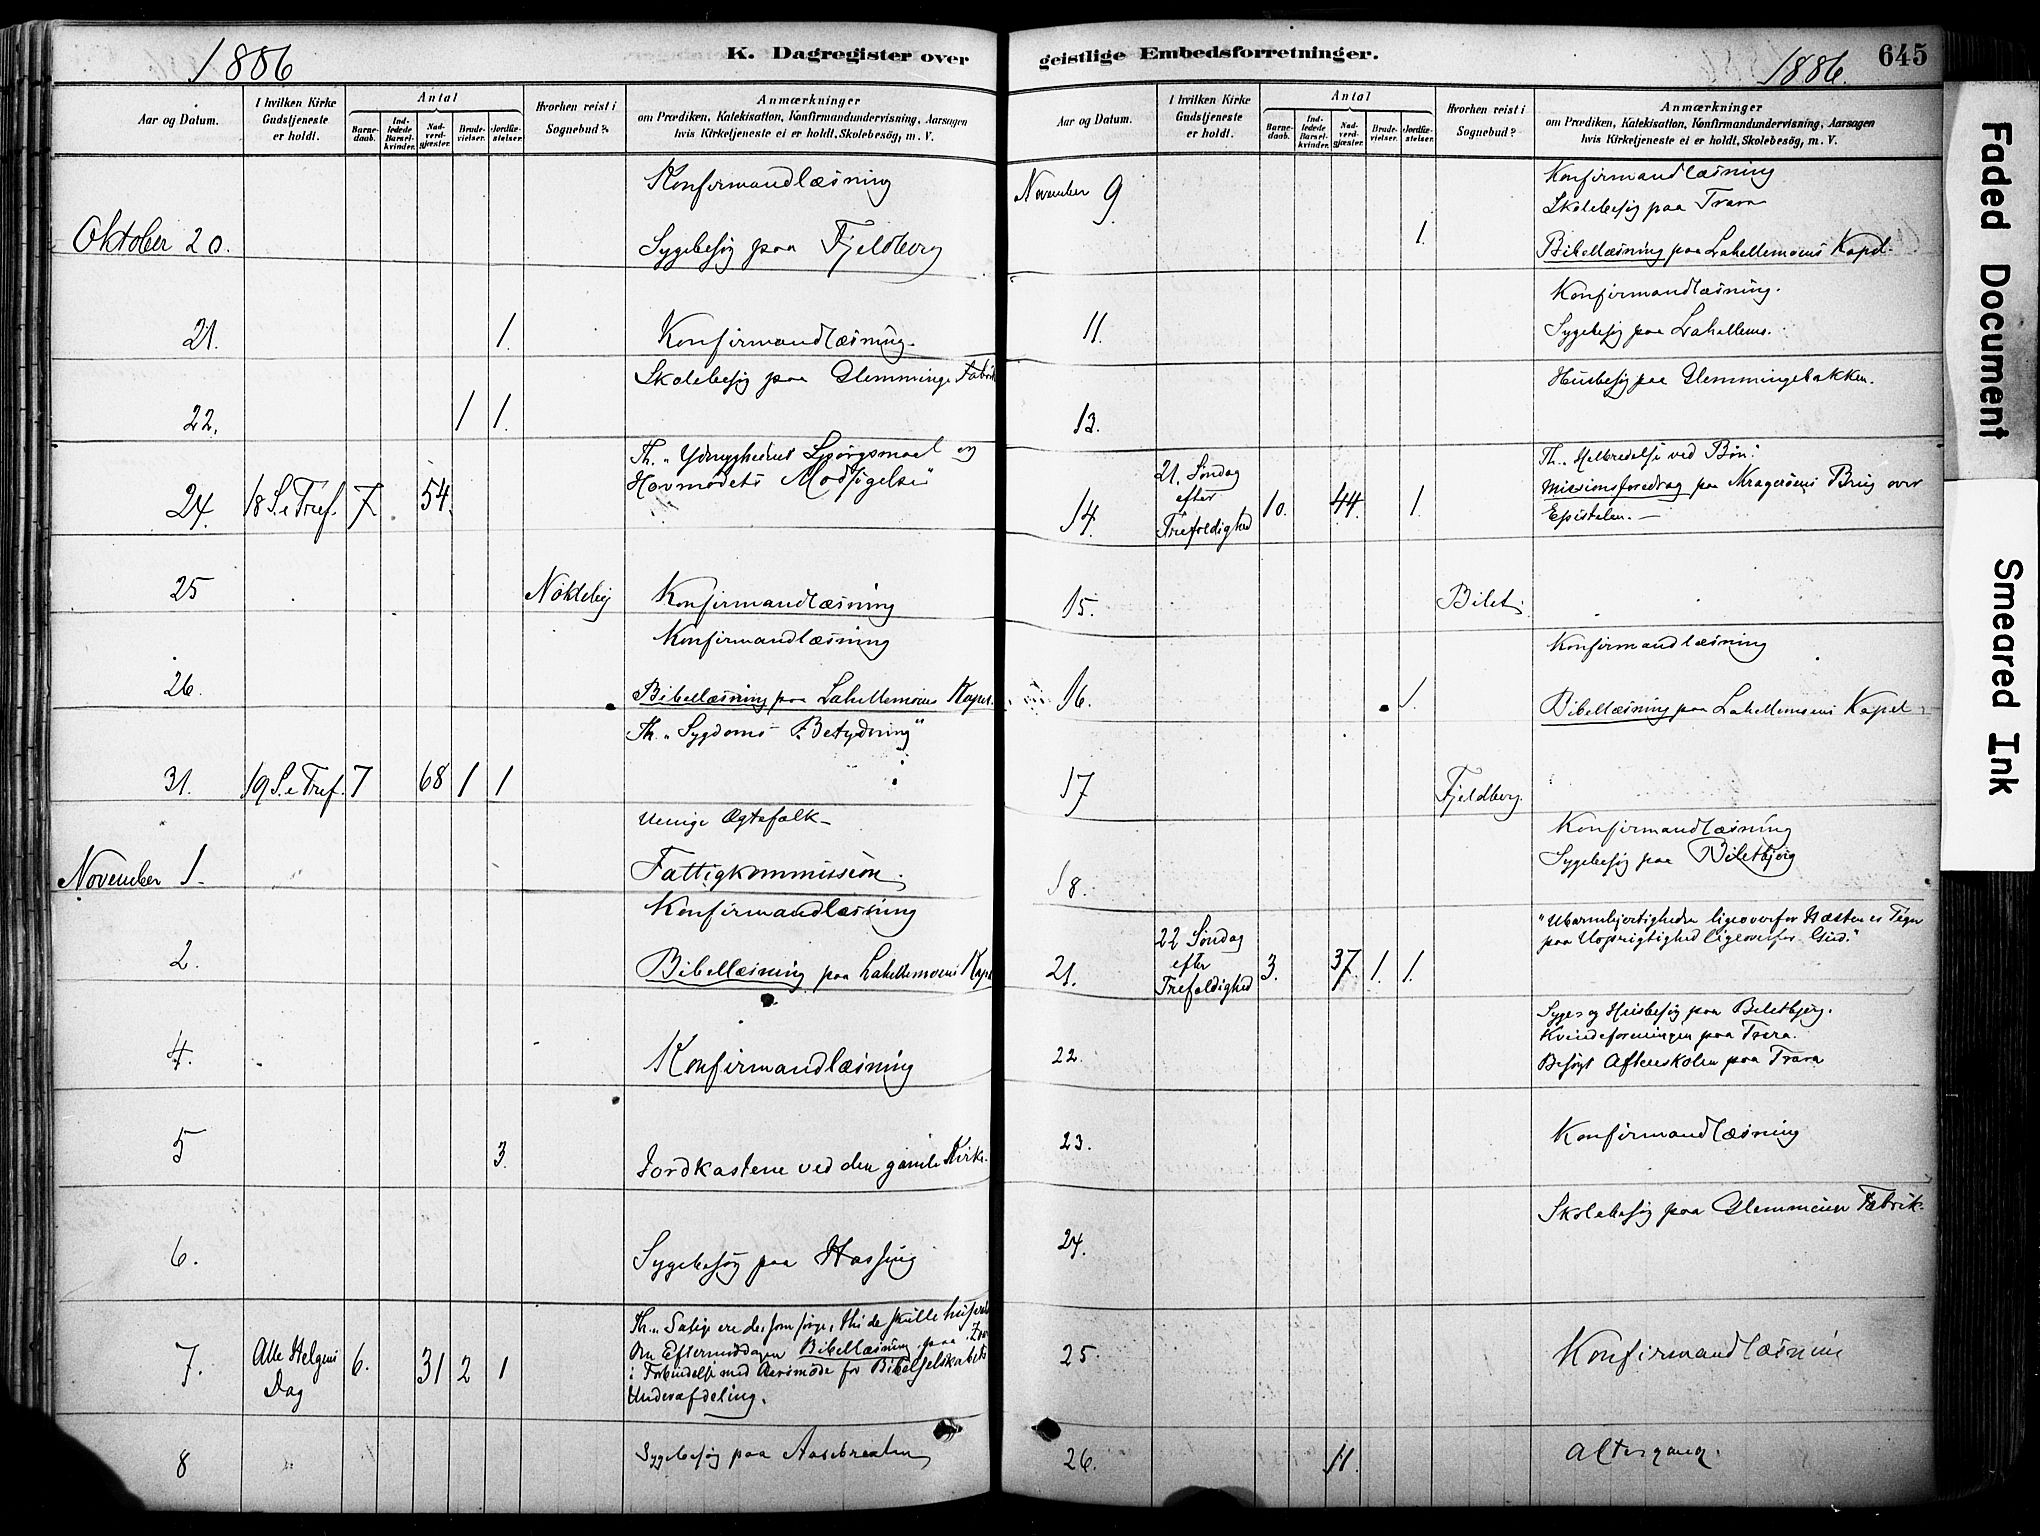 1886
K. Dagregister over
Aar og Datum.
I hvilken Kirke Gudstjeneste er holdt.
Antal
Barne-daab.
Ind-ledede Barsel-kvinder.
Nad-verd-gjæster.
Brude-vielser.
Jordfæ-stelser.
Hvorhen reist i Sognebud?
Anmærkninger
om Prædiken, Katekisation, Konfirmandundervisning, Aarsagen
hvis Kirketjeneste ei er holdt, Skolebesög, m. V.
Konfirmandlæsning
Oktober 20. Sygebesøg paa Fjeldberg
21. 1. Konfirmandlæsning.
Skolebesøg paa Glemminge Fabrik
22. 1 1.
Th. „Ydmyghedens Spørgsmaal og
Hovmodets Modsigelse"
24. 18 S. e Tref. 7. 54.
25 Nökleby Konfirmandlæsning
Konfirmandlæsning
26. Bibellæsning paa Lahellemoens Kapel.
Th. „Sygdoms Betydning"
31. 19 S. e Tref. 7 68 1 1
Uenige Ægtefolk
November 1. Fattigkommission.
Konfirmandlæsning
2. Bibellæsning paa Lahellemoens Kapel
4. Konfirmandlæsning
5 3. Jordkastene ved den gamle Kirke.
6. Sygebesøg paa Hassing
Th. „Salige ere de, som sørge, thi de skulle
Om Eftermiddagen Bibellæsning paa
7. Alle Helgens Dag 6. 31 2 1 i Forbindelse med Aarsmøde for Bibelselskabets
Underafdeling.
8 Sygebesøg paa
geistlige Embedsforretninger.
1886.
645
Aar og Datum.
I hvilken Kirke Gudstjeneste er holdt.
Antal
Barne-daab.
Ind-ledede Barsel-kvinder.
Nad-verd-gjæster.
Brude-vielser.
Jordfæ-stelser.
Hvorhen reist i Sognebud?
Anmærkninger
om Prædiken, Katekisation, Konfirmandundervisning, Aarsagen
hvis Kirketjeneste ei er holdt, Skolebesög, m. V.
Konfirmandlæsning
November 9 Skolebesøg paa Trara
1. Bibellæsning paa Lahellemoens Kapel.
Konfirmandlæsning.
11. Sygebesøg paa Lahellemo.
Husbesøg paa Glemmingebakken.
13.
Th. „Helbredelse ved Bøn".
14. 21. Søndag efter Trefoldighed 10. 44. 1. Missionsforedrag paa Kragerøens Brug over
Epistelen.
15. Bilet
Konfirmandlæsning
16. 1 Bibellæsning paa Lahellemoens Kapel
17 Fjeldberg.
Konfirmandlæsning
18. Sygebesøg paa Biletbjerg
"Ubarmhjertighed ligeoverfor Næsten er Tegn
paa Uoprigtighed ligeoverfor Gud."
21. 22 Søndag efter Trefoldighed 3. 37. 1. 1.
Syge og Husbesøg paa Biletbjerg.
Kvindeforeningen paa Trara.
22. Besøgt Aftenskolen paa Trara
23. Konfirmandlæsning
Skolebesøg paa Glemminge Fabrik.
24.
25. Konfirmandlæsning
26. 11. Altergang.
Faded Document
Smeared Ink